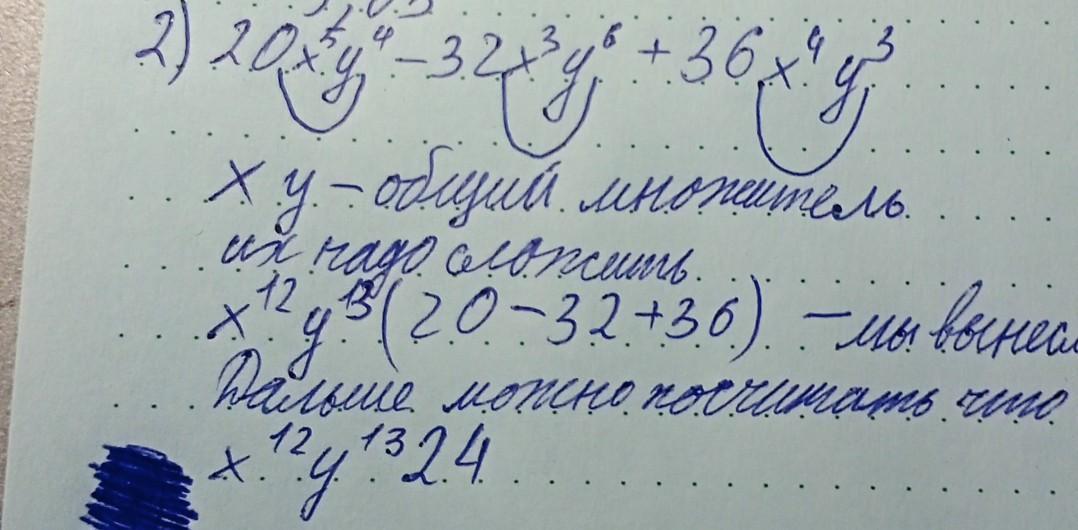 2) 20x⁵y⁴ – 32x³y⁶ + 36x⁴y³
x y – общий множитель
их надо сложить
x¹²y¹³(20 – 32 + 36) – мы вынесл
Дальше можно посчитать что
x¹²y¹³24